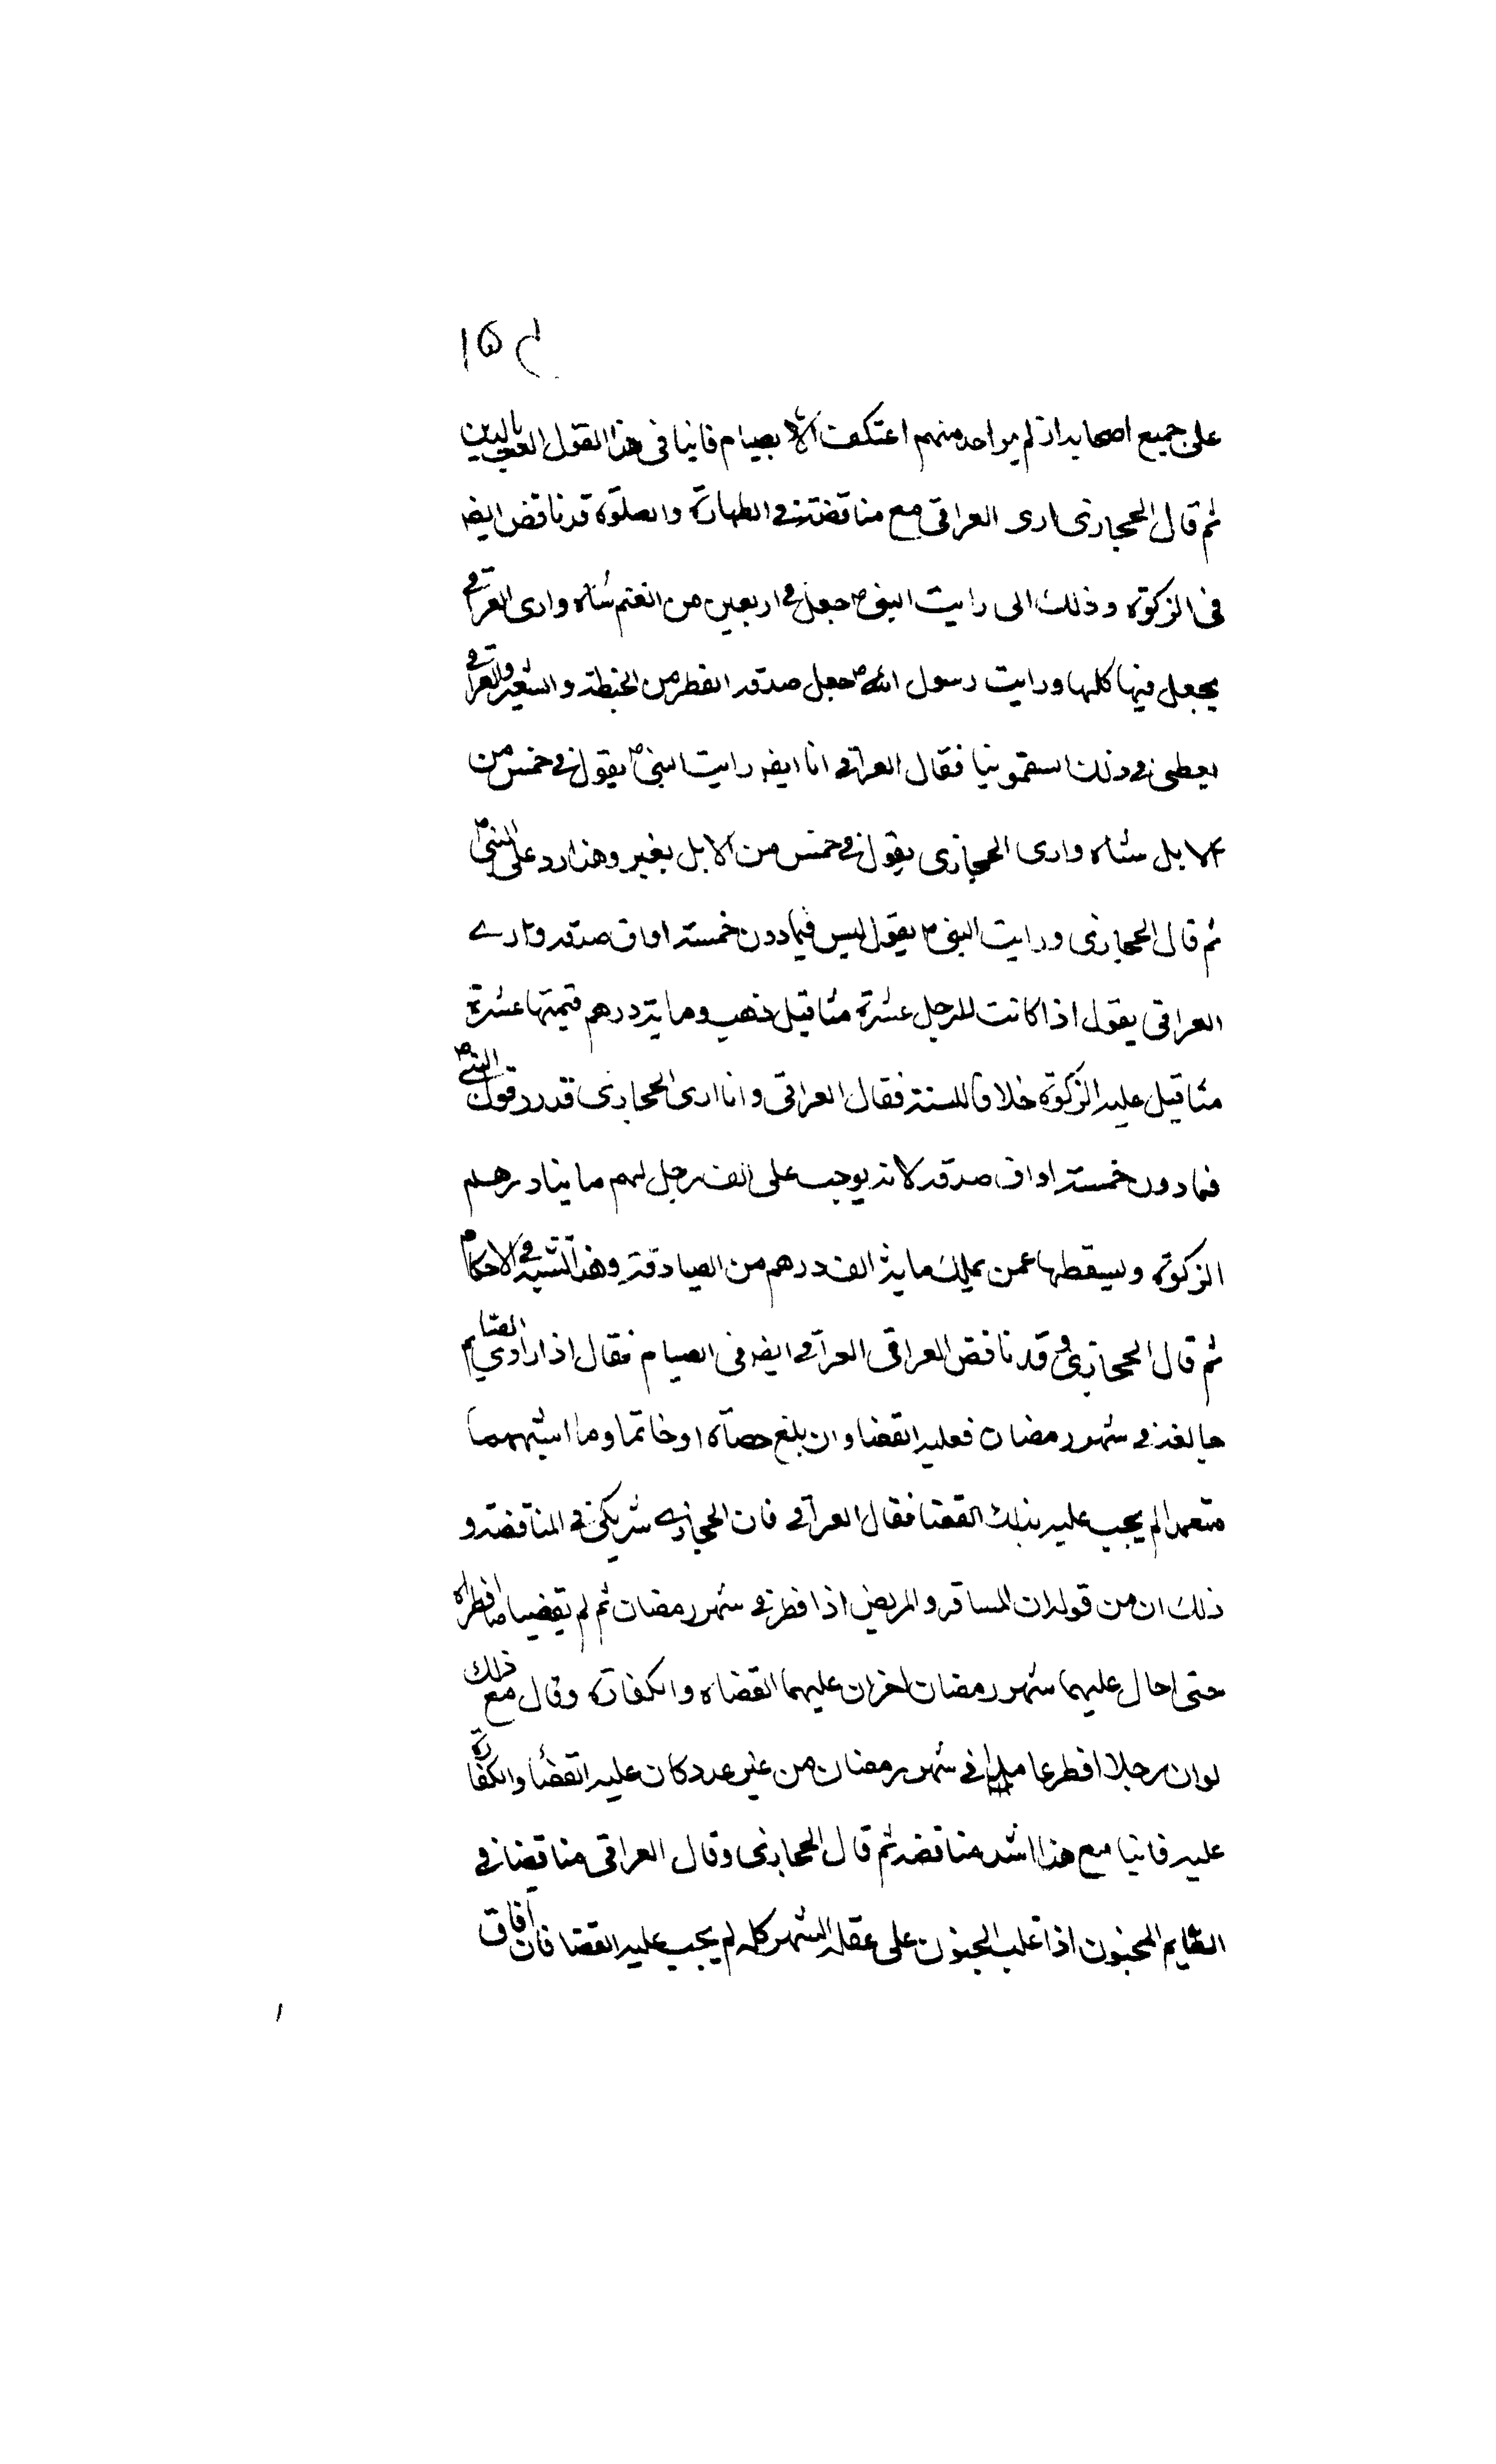 على جميع اصحابه اذ لم ير احد منهم اعتكف الا بصيام فانيا فى هذا القول بالدين
ثم قال الحجازى ارى العراقى مع مناقضته فى الطهارة والصلوة قد ناقض ايضه
فى الزكوة وذلك انى رايت النبى ص جعل فى اربعين من الغنم شاه وارى العراقى
يجعل فيها كلها ورايت رسول الله ص جعل صدقه الفطر من الحنطة والشعير والعراقى
يعطى فى ذلك سقمونيا فقال العراقى انا ايضه رايت النبى ص يقول فى خمس من
الابل شاه وارى الحجازى يقول فى خمس من الابل بغير وهذا رد على النبى ص
ثم قال الحجازى ورايت النبى ص يقول ليس فيما دون خمسة اواق صدقه وارى
العراقى يقول اذا كانت للرجل عشرة مثاقيل ذهب وماية درهم قيمتها عشرة
مثاقيل عليه الزكوة خلافا للسنة فقال العراقى وانا ارى الحجازى قد رد قول النبى ص
فما دون خمسة اواق صدقه لانه يوجب على الف رجل لهم مايتا درهم
الزكوة ويسقطها عمن يملك ماية الف درهم من الصيادقة وهذا فى الاحكام
ثم قال الحجازى وقد ناقض العراقى العراقى ايضه فى الصيام فقال اذا الصايم
ما لغذ فى شهر رمضان فعليه القضا وان بلغ حصاة او خاتما وما اشبههما
متعمدا لم يجب عليه بذلك القضا فقال العراقى فان الحجازى شريكى فى المناقضة و
ذلك ان من قوله ان المسافر والمريض اذا فطر فى شهر رمضان ثم لم يقضيا ما افطراه
حتى احال عليهما شهر رمضان اخر ان عليهما القضاه والكفارة وقال مع ذلك
لو ان رجلا افطر عامدا فى شهر رمضان من غير عدد كان عليه القضاء والكفارة
عليه فانيا مع هذا اشد مناقضه ثم قال الحجازى وقال العراقى مناقضا فى
الصايم المجنون اذا غلب الجنون على عقله الشهر كله لم يجب عليه القضا فان افاق